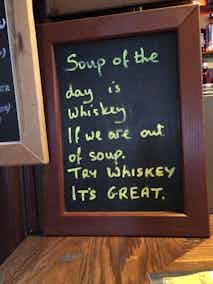 Soup of the
day is
Whiskey
If we are out
of soup.
TRY WHISKEY
IT'S GREAT.